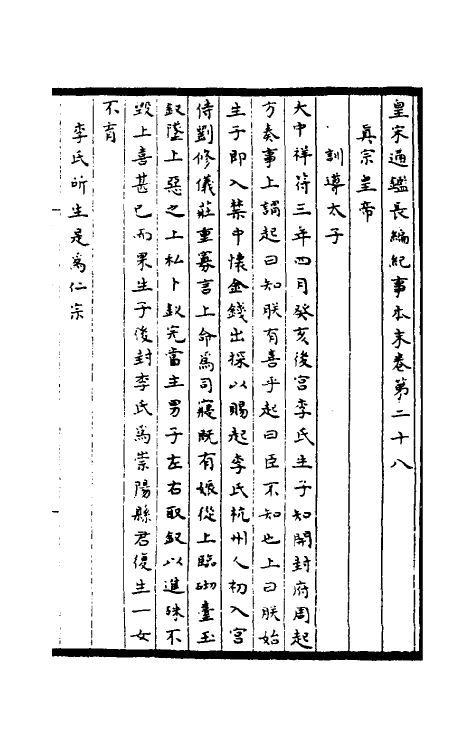 皇宋通鑑長編紀事本末卷第二十八
真宗皇帝
訓導太子
大中祥符三年四月癸亥後宮李氏生子知開封府周起
方奏事上謂起曰知朕有喜乎起曰臣不知也上曰朕始
生子即入禁中懷金錢出探以賜起李氏杭州人初入宮
侍劉修儀莊重寡言上命為司寢既有娠從上臨砌臺玉
釵墜上惡之上私卜釵完當主男子左右取釵以進殊不
毀上喜甚已而果生子後封李氏為崇陽縣君復生一女
不育
李氏所生是為仁宗